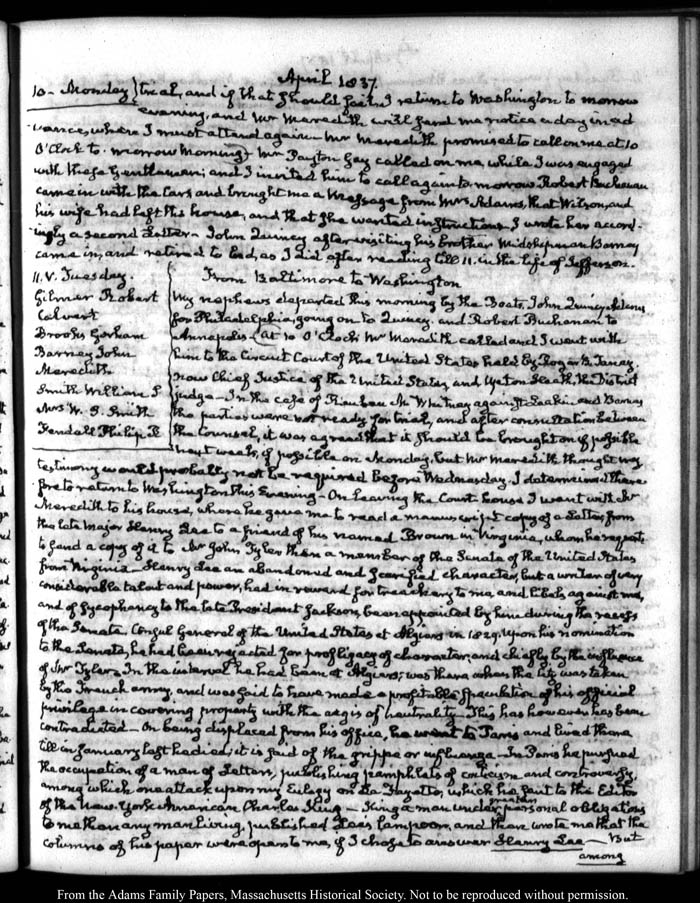 April 1837.
10. Monday} trial, and if that should fail, I return to Washington to morrow
evening, and Mr Meredith will send me notice a day in ad
vance, when I must attend again. Mr Meredith promised to call on me at 10
O'Clock to-morrow Morning. Mr Payton Gay called on me, while I was engaged
with these Gentlemen; and I invited him to call again to-morrow. Robert Buchanan
came in with the Cars and brought me a Message from Mrs Adams, that Wilson, and
his wife had left the house, and that she wanted instructions. I wrote her accord-
ingly a second Letter. John Quincy after visiting his brother Midshipman Barney
came in, and retired to bed, as I did after reading till 11. in the life of Jefferson.
11. V. Tuesday.
Gilmer Robert
Calvert
Brooks Gorham
Barney John
Meredith
Smith William S
Mrs W. S. Smith
Fendall Philip R
From Baltimore to Washington
My nephews departed this morning by the Boats. John Quincy Adams
for Philadelphia, going on to Quincy. and Robert Buchanan to
Annapolis. At 10 O'Clock Mr Meredith called and I went with
him to the Circuit Court of the United States held by Roger B. Taney,
now Chief Justice of the United States, and Upton Heath, the District
judge. In the case of Reuben M. Whitney against Leakin and Barney
the parties were not ready for trial, and after consultation between
the Counsel, it was agreed that it should be brought on if possible
next week, if possible on Monday, but Mr Meredith thought my
testimony would probably not be required before Wednesday. I determined there
fore to return to Washington this Evening. On leaving the Court house I went with Mr
Meredith to his house, where he gave me to read a manuscript copy of a Letter from
the late Major Henry Lee to a friend of his named Brown in Virginia, whom he requests
to send a copy of it to Mr John Tyler then a member of the Senate of the United States
from Virginia. Henry Lee an abandoned and character, but a writer of very
considerable talent and power, had in reward for treachery to me, and libels against me,
and of Sycophancy to the late President Jackson, been appointed by him during the recess
of the Senate. Consul General of the United States at Algiers in 1829. Upon his nomination
to the Senate, he had been rejected for profligacy of character, and chiefly by the influence
of Mr Tyler. In the interval he had been at Algiers; was there when the City was taken
by the French army, and was said to have made a profitable speculation of his official
privilege in covering property with the aegis of neutrality. This has however been
contradicted. On being displaced from his office, he went to Paris and lived there
till in January last he died; it is said of the grippe or influenza. In Paris he pursued
the occupation of a man of Letters, publishing pamphlets of criticism and controversy,
among which one attack upon my Eulogy on La Fayette, which he sent to the Editor
of the New-York American Charles King. King a man under greater personal obligations
to me than any man living, published Lee's lampoon, and then wrote me that the
columns of his paper were open to me, if I chose to answer Henry Lee. But
among
From the Adams Family Papers, Massachusetts Historical Society. Not to be reproduced without permission.